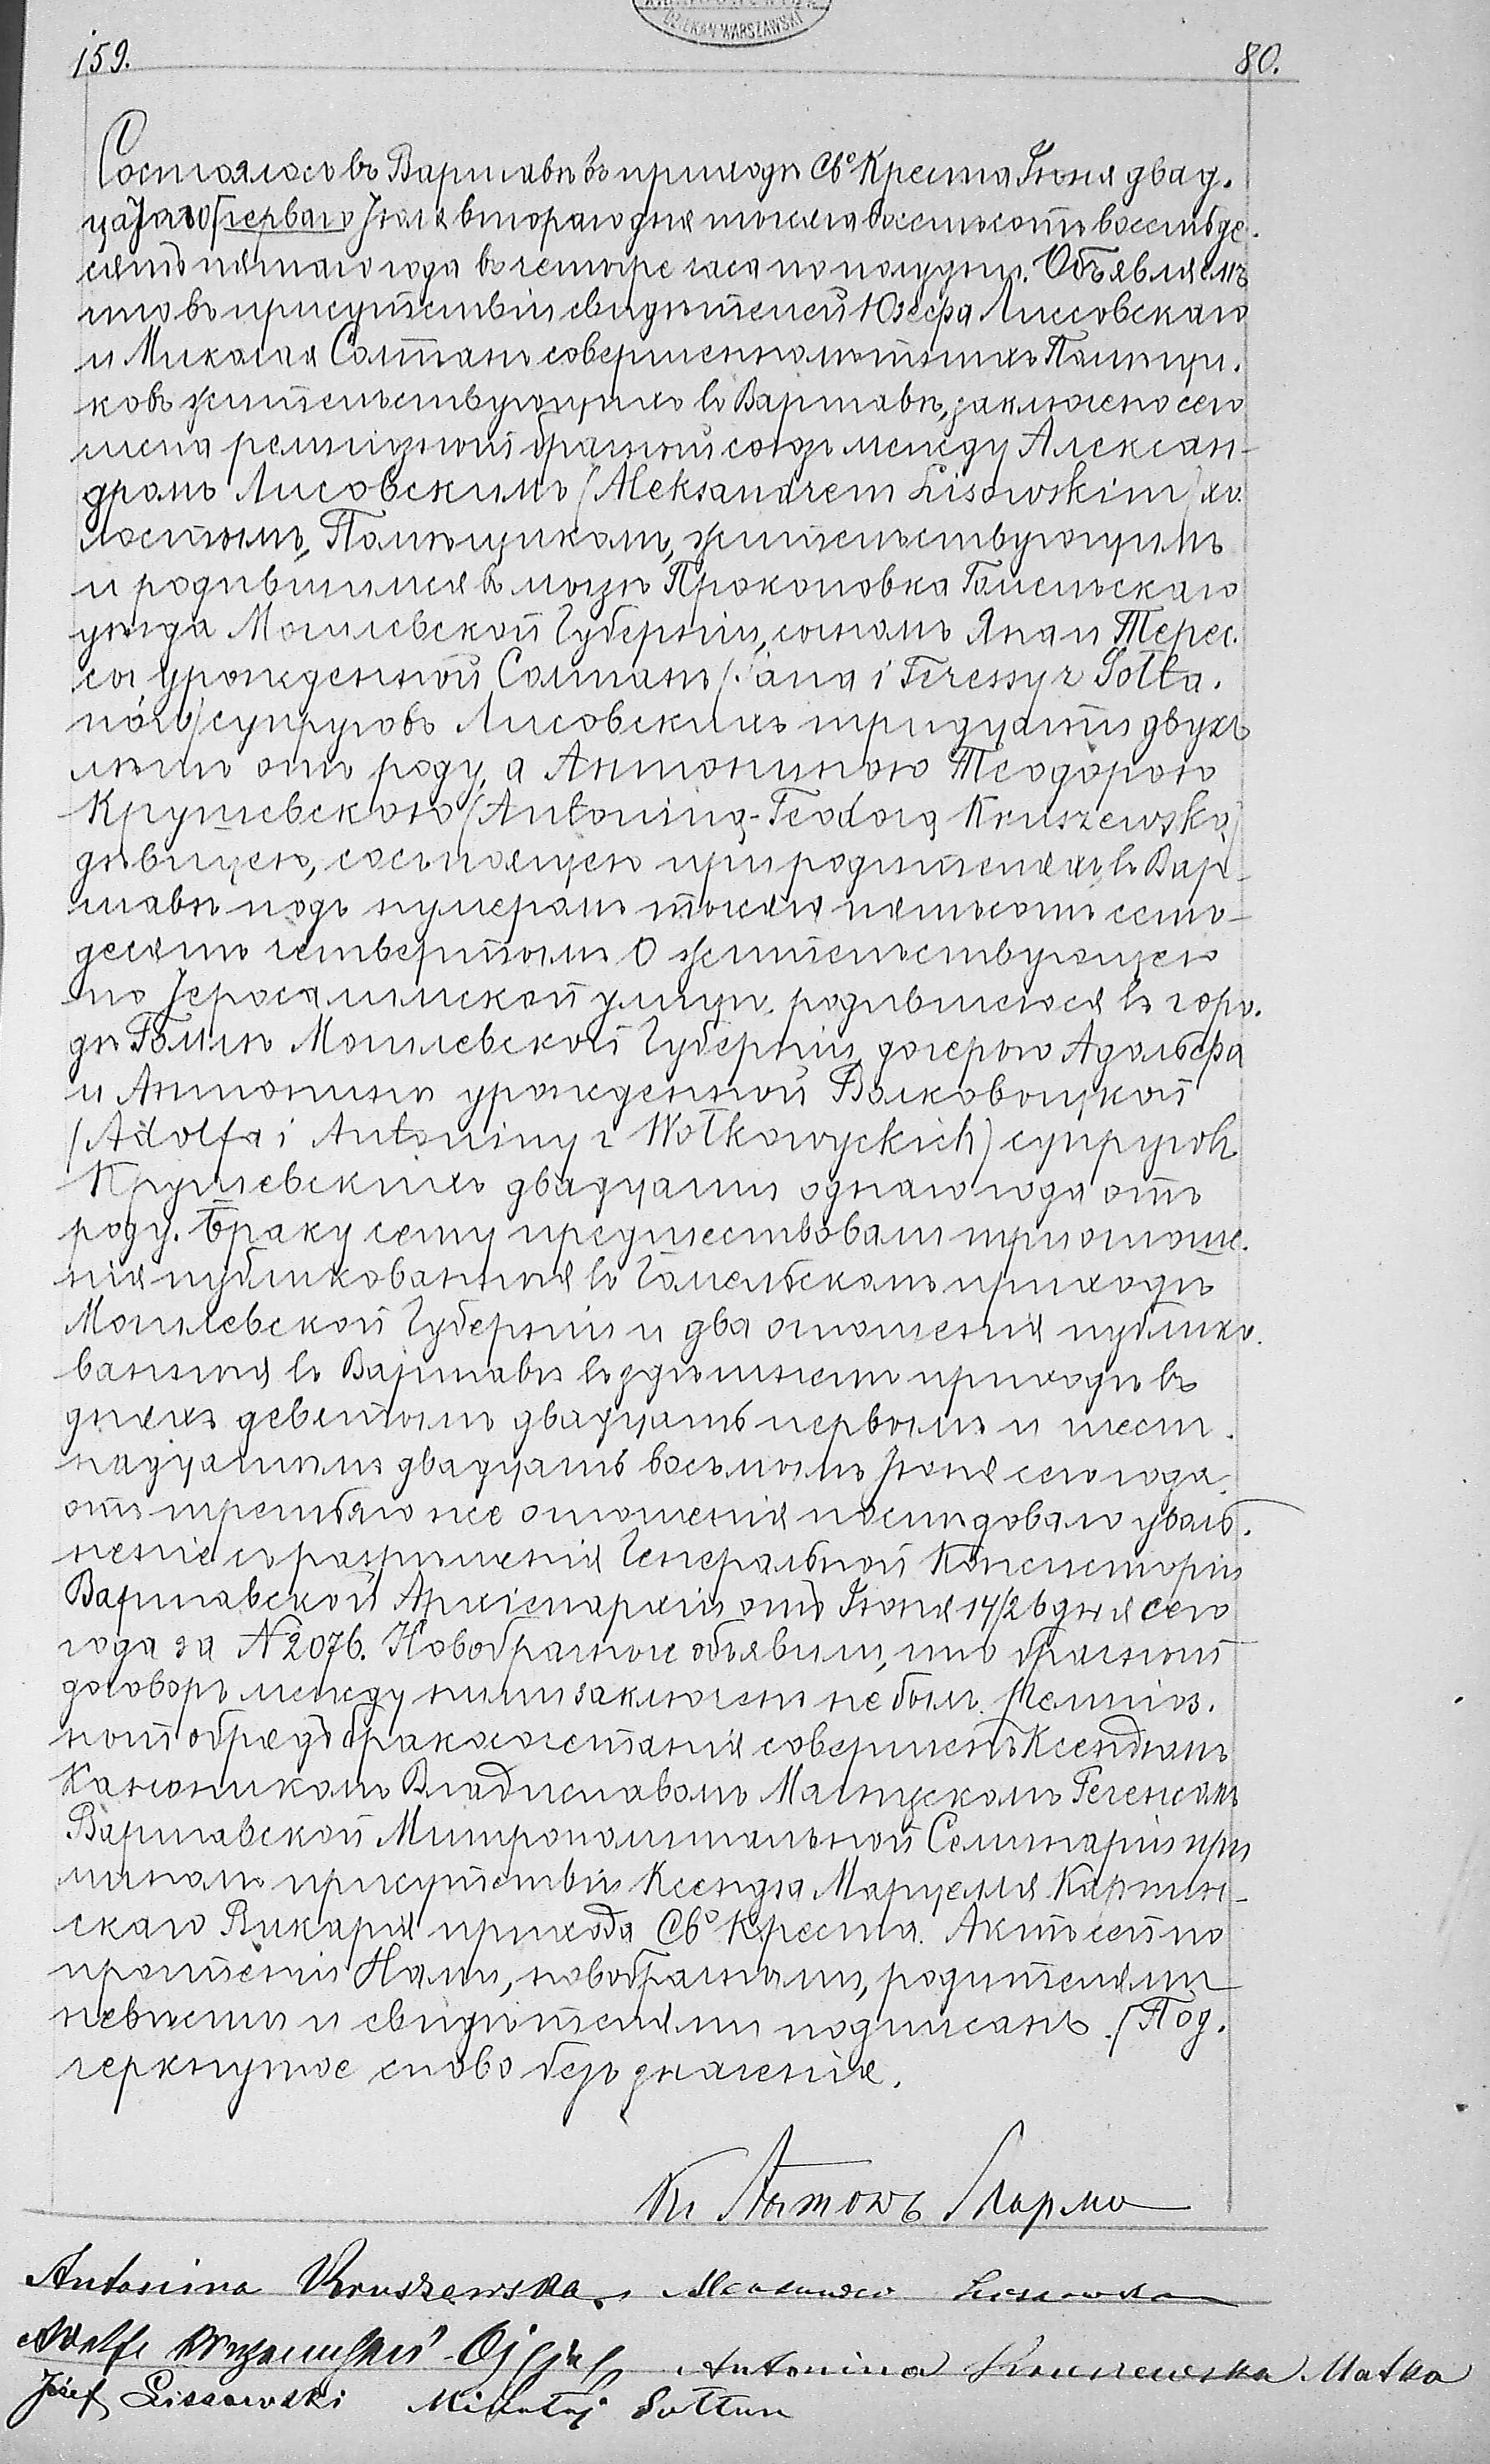 DZIEKAN WARSZAWSKI
159. 80.
Состоялось въ Варшавѣ въ приходѣ Св.о Креста Іюня двад.
цатаго перваго Іюля втораго дня тысяча восемьсотъ восемьде.
сятъ пятаго года въ четыре часа по полудни. Объявляемъ
что въ присутствіи свидѣтелей Юзефа Лиссовскаго
и Миколая Солтанъ совершеннолѣтныхъ Помѣщи.
ковъ жительствующихъ въ Варшавѣ, заключено сего
числа религіозный брачный союзъ между Алексан-
дромъ Лисовскимъ (Aleksandrem Lisowskim) хо.
лостымъ, Помѣщикомъ, жительствующимъ
и родившимся въ мызѣ Прокоповка Гомельскаго
уѣзда Могилевской Губерніи, сыномъ Яна и Терес.
сы урожденной Солтанъ (Jana i Teressy z Sołta.
nów) супруговъ Лисовскихъ тридцати двухъ
лѣтъ отъ роду, а Антониною Теодорою
Крушевскою (Antoniną-Teodorą Kruszewską)
дѣвицею, состоящею при родителяхъ въ Вар-
шавѣ подъ нумеромъ тысяча пятьсотъ семь-
десятъ четвертымъ О жительствующею
по Іеросалимской улицѣ, родившеюся въ горо.
дѣ Гомлѣ Могилевской Губерніи, дочерью Адольфа
и Антонины урожденной Волковыцкой
(Adolfa i Antoniny z Wołkowyckich) супруговъ
Крушевскихъ двадцати однаго года отъ
роду. Браку сему предшествовали три оглаше.
нія публикованныя въ Гомельскомъ приходѣ
Могилевской Губерніи и два оглашенія публико.
ванныя въ Варшавѣ въ здѣшнемъ приходѣ въ
дняхъ девятомъ двадцать первомъ и шест.
надцатымъ двадцать восьмомъ Іюня сего года.
отъ третьяго же оглашенія послѣдовало уволь.
неніе съ разрѣшенія Генеральной Консисторіи
Варшавской Архіепархіи отъ Іюня 14/26 дня сего
года за N 2076. Новобрачные объявили, что брачный
договоръ между ними заключенъ не былъ. Религіоз.
ный обрядъ бракосочетанія совершенъ Ксендзомъ
Каноникомъ Владиславомъ Регенсомъ
Варшавской Митрополитальной Семинаріи при
личномъ присутствіи Ксендза Марцелія
скаго Викарія прихода Св.о Креста. Актъ сей по
прочтеніи Нами, новобрачными, родителями
невѣсты и свидѣтелями подписанъ. (Под.
черкнутое слово безъ значенія.
Кс Антонъ
Antonina Kruszewska Aleksander Lissowski
Adolf Kruszewski Ojciec Antonina Kruszewska Matka
Józef Lissowski Mikołaj Sołtan